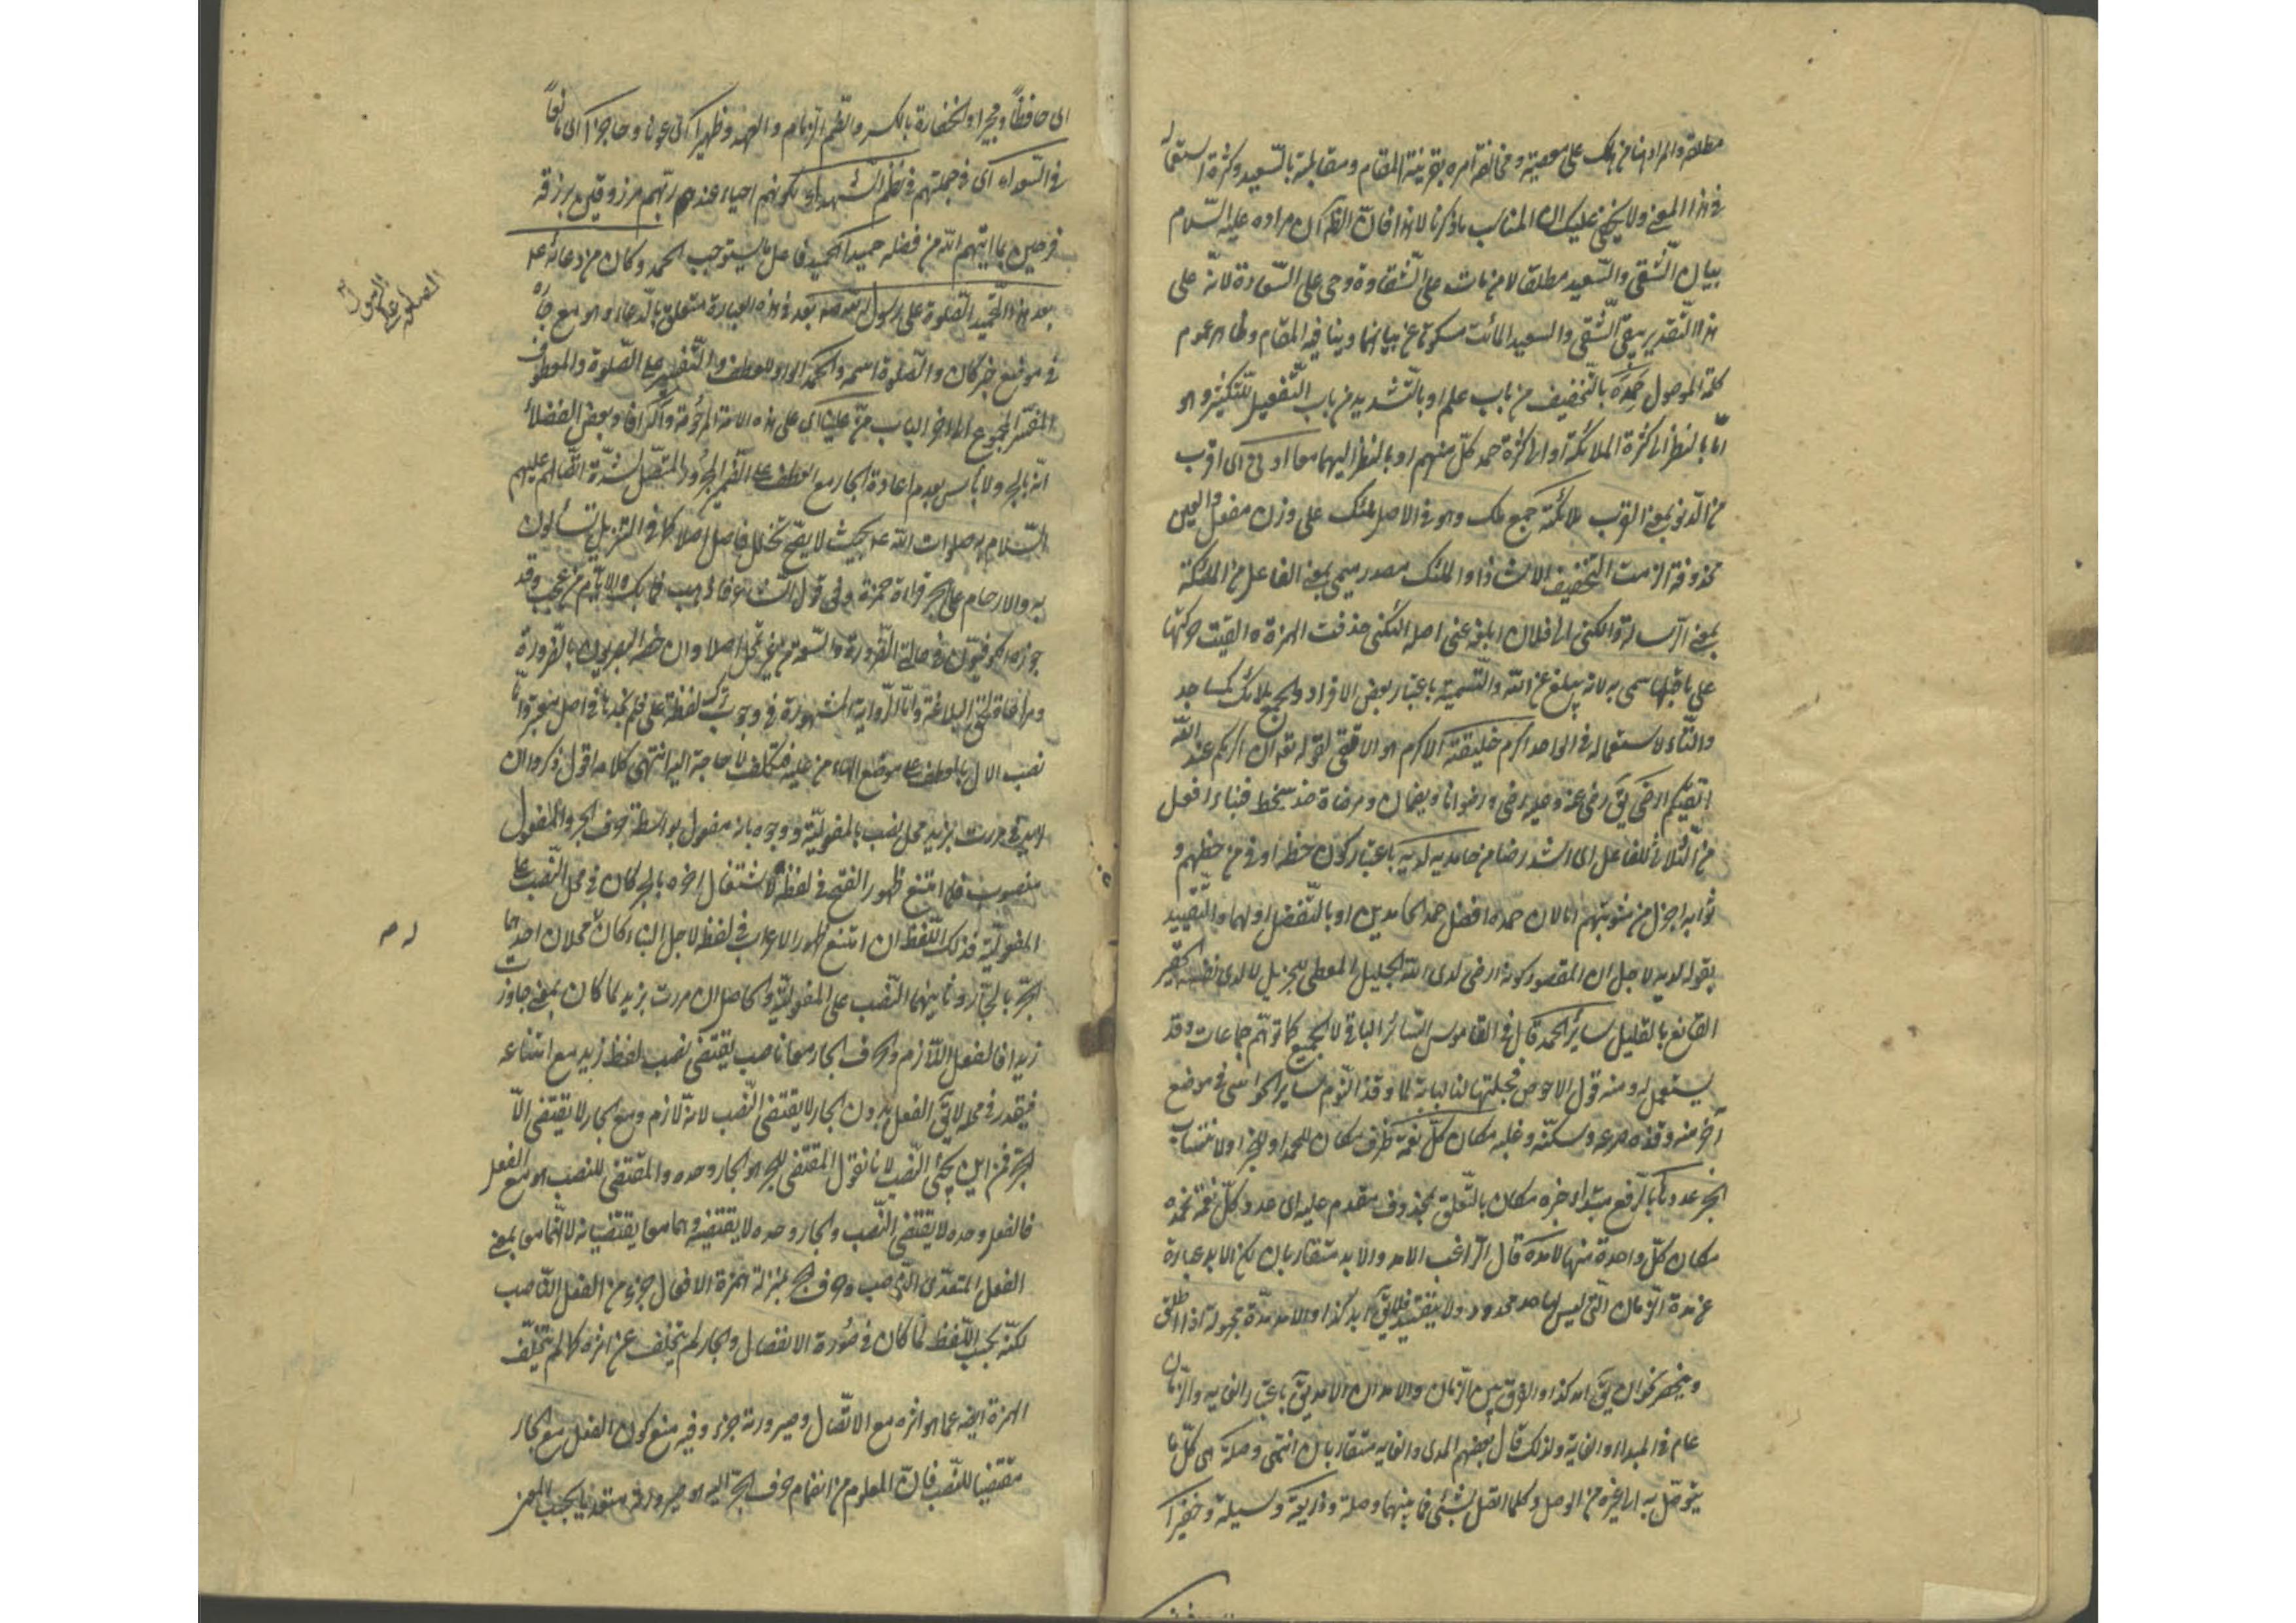 مطلقا والمراد هنا من هلك على معصية ومخالفة امره بقرينة المقام ومقابلته بالسعيد وكثرة استعماله
في هذا المعنى ولا يخفى عليك ان المناسب ما ذكرنا لا هذا فان الظ ان مراده عليه السلام
بيان الشقي والسعيد مطلقا لا من مات على الشقاوة وحي على السعادة لانه على
هذا التقدير يبقى الشقي والسعيد المائت مسكوتا عن بيانهما وينافيه المقام وظاهر عموم
كلمة الموصول حمده بالتخفيف من باب علم او بالتشديد من باب التفعيل للتكثير وهو
اما بالنظر الى كثرة الملائكة او الى كثرة حمد كل منهم او بالنظر اليهما معا ادنى اى اقرب
من الدنو بمعنى القرب ملائكته جمع ملك وهو في الاصل ملئك على وزن مفعل والعين
محذوفة الزمت التخفيف الا شاذا والملئك مصدر ميمي بمعنى الفاعل من الملئكة
بمعنى الرسالة والكنى الى فلان ابلغه عنى اصله الئكنى حذفت الهمزة والقيت حركتها
على ما قبلها سمى به لانه يبلغ عن الله والتسمية باعتبار بعض الافراد والجمع ملائك كمساجد
والتاء لاستعماله في الواحد اكرم خليقته الاكرم هو الاتقى لقوله تعه ان اكرمكم عند الله
اتقيكم ارضى يق رضى عنه وعليه رضى ورضوانا ويضمان ومرضاة ضد سخط فبناء افعل
من الثلاثى للفاعل اى اشد رضا من حامديه لديه باعتبار كون حظه اوفى من حظهم و
ثوابه اجزل من مثوبتهم اما لان حمده افضل حمد الحامدين او بالتفضل او لهما والتقييد
بقوله لديه لاجل ان المقصود كونه ارضى لدى الله الجليل المعطى للجزيل لا لدى نظيره الفقير
القانع بالقليل ساير الحمد قال في القاموس السائر الباقى لا الجميع كما توهم جماعات وقد
يستعمل له ومنه قول الاحوص فجلتها لنا لبابة لما وقذ النوم ساير الحراس فى موضع
آخر منه وقذه صرعه وسكنه وغلبه مكان كل نعمة ظرف مكان للحمد او للجزاء ولا منتصاب
الجر عددها بالرفع مبتداء خبره مكان بالتعلق بمحذوف مقدم عليه اى عدد كل نعمة نحمده
مكان كل واحدة منها لامده قال الراغب الامد والابد متقاربان لكن الابد عبارة
عن مدة الزمان التى ليس لها حد محدود ولا يتقيد فلا يق ابد كذا والامد مدة مجهولة اذا اطلق
وينحصر نحو ان يق امد كذا والفرق بين الزمان والامد ان الامد يق باعتبار الغاية والزمان
عام فى المبداء والغاية ولذلك قال بعضهم المدى والغاية متقاربان انتهى وصلة هى كل ما
يتوصل به الى غيره من الوصل وكلما اتصل بشئ فما بينهما وصلة وذريعة وسيلة وخفيرا
اى حافظا ومجيرا والخفارة بالكسر والضم الذمام والعهد وظهيرا اى عونا وحاجزا اى مانعا
فى السعداء اى فى جملتهم فى نظم الشهداء لكونهم احياء عند ربهم مرزوقين برزقه
فرحين بما اتيهم الله من فضله حميد الحميد فاعل ما يستوجب الحمد وكان من دعائه ع
بعد هذا التحميد الصلوة على رسول الله صه بعد فى هذه العبارة متعلق بالدعاء وهو مع جاره
فى موضع خبر كان والصلوة اسمه والحمد لله الواو للعطف والتفسير على الصلوة والمعطوف
المفسر المجموع الى اخر الباب من علينا اى على هذه الامة المرحومة وآله افاد بعض الفضلاء
انه بالجر ولا باس بعدم اعادة الجار مع العطف على الضمير المجرور المتصل لشدة اتصالهم عليهم
السلام به صلوات الله عه بحيث لا يصح تخلل فاصل اصلا كما فى التنزيل تسألون
به والارحام على الجر قراءة حمزة وفى قول الشاعر فاذهب فما بك والايام من عجب وقد
جوزه الكوفيون فى حالتى الضرورة والسعة من غير تمحل اصلا وان خصه البصريون بالضرورة
ومراعاة لحق البلاغة واما الرواية المشهورة فى وجوب ترك لفظة على فلم نجدها فى اصل معتبر واما
نصب الآل بالعطف على موضع الهاء من عليه فتكلف لا حاجة اليه انتهى كلامه اقول ذكروا ان
لزيد فى مررت بزيد محل نصب بالمفعولية ووجهه بانه مفعول بواسطة حرف الجر والمفعول
منصوب فلما امتنع ظهور الفتح فى لفظه لاشتغال اخره بالجر كان فى محل النصب على
المفعولية فذلك اللفظ ان امتنع ظهور الاعراب فى لفظه لاجل البناء كان له محلان احدهما
الجر بالجار وثانيهما النصب على المفعولية والحاصل ان مررت بزيد لما كان بمعنى جاوزت
زيدا فالفعل اللازم وحرف الجار معا ناصب يقتضى نصب لفظ زيد مع امتناعه
فيقدر فى محله لا يق الفعل بدون الجار لا يقتضى النصب لانه لازم ومع الجار لا يقتضى الا
الجر فمن اين يجئ النصب لانا نقول المقتضى للجر هو الجار وحده والمقتضى للنصب هو مع الفعل
فالفعل وحده لا يقتضى النصب والجار وحده لا يقتضيه وهما معا يقتضيانه لانهما معا بمعنى
الفعل المتعدى الناصب وحرف الجر بمنزلة همزة الافعال جزء من الفعل الناصب
لكنه بحسب اللفظ لما كان فى صورة الانفصال والجار لم يتخلف عن اثره كما لم يتخلف
الهمزة ايضه عما هو اثره مع الاتصال وصيرورته جزء وفيه منع كون الفعل مع الجار
مقتضيا للنصب فان المعلوم من انضمام حرف الجر اليه هو صيرورته متعديا بحسب المعنى
الصلوة على الرسول
له صه